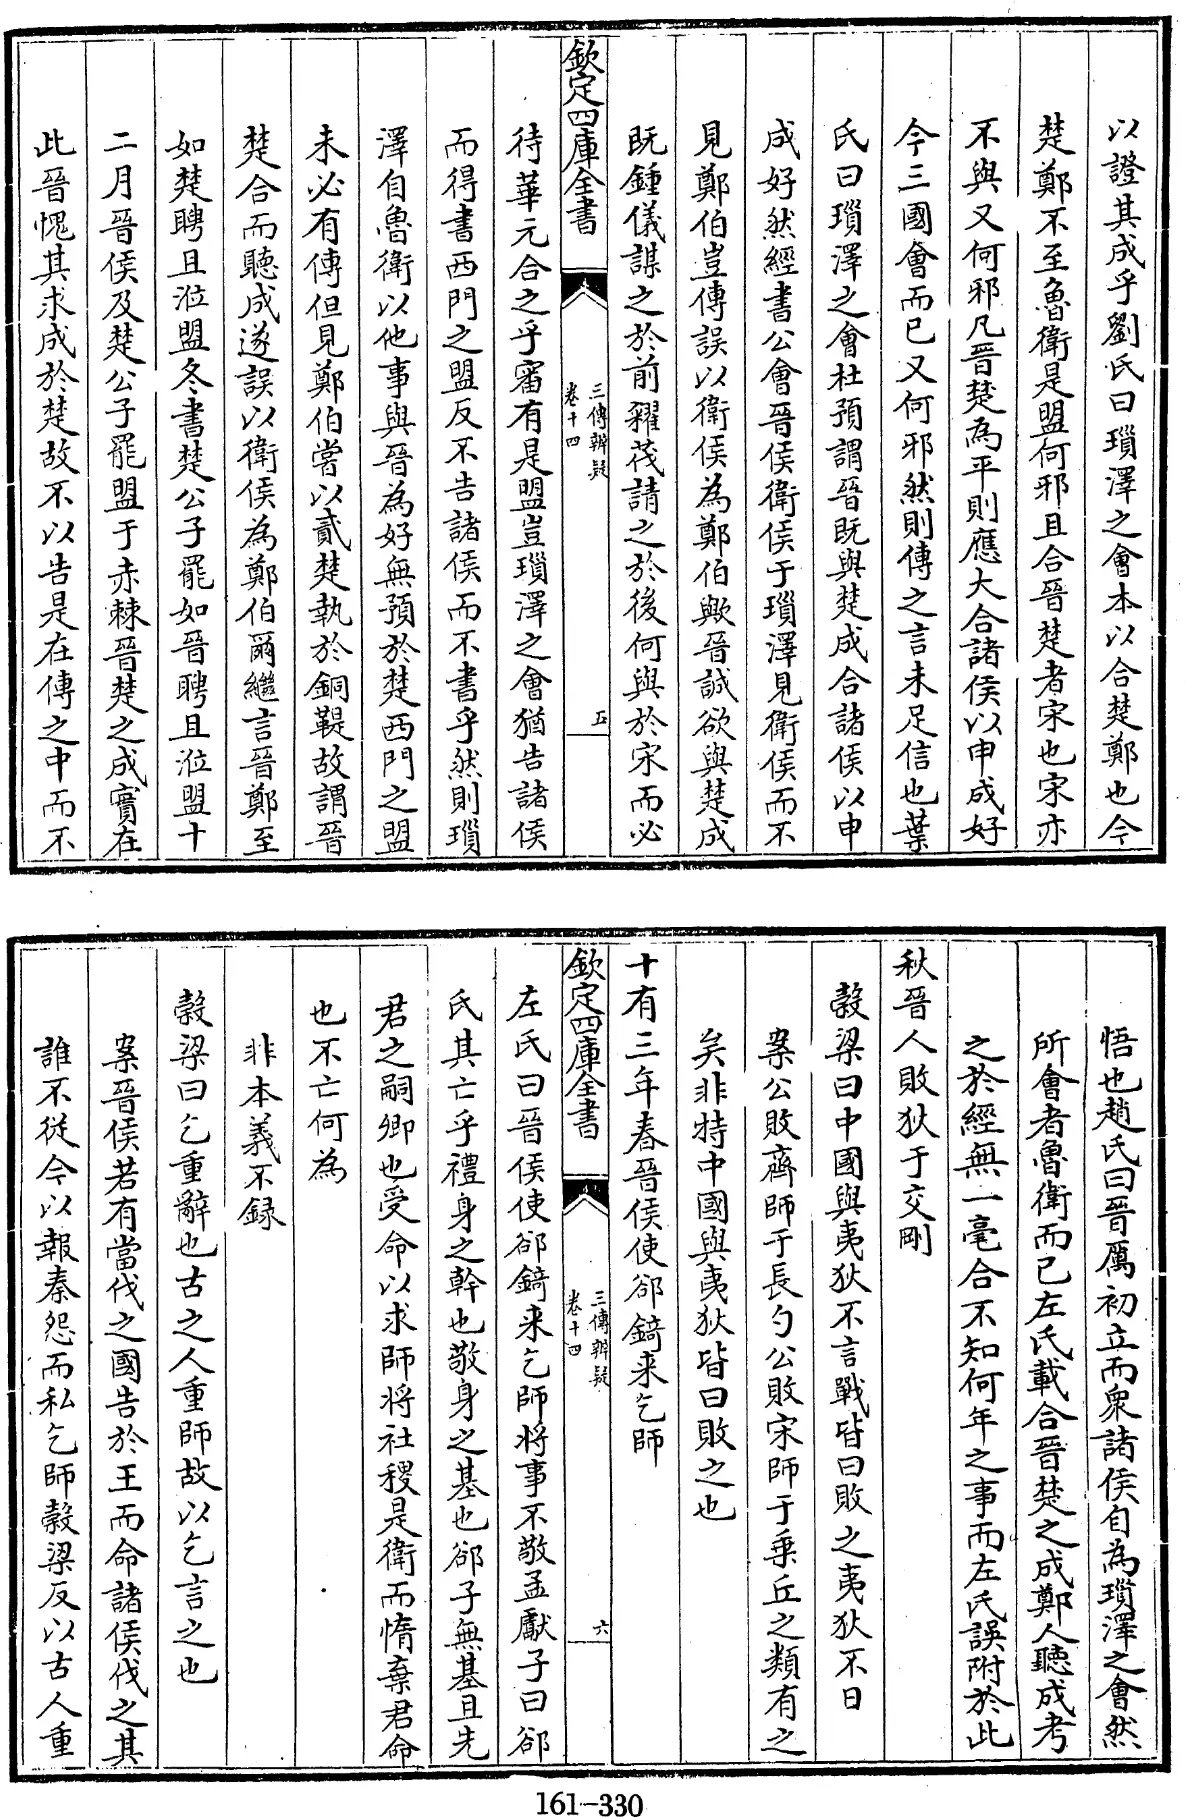 以證其成乎劉氏曰瑣澤之會本以合楚鄭也今
楚鄭不至魯衛是盟何邪且合晉楚者宋也宋亦
不與又何邪凡晉楚為平則應大合諸侯以申成好
今三國會而已又何邪然則傳之言未足信也葉
氏曰瑣澤之會杜預謂晉既與楚成合諸侯以申
成好然經書公會晉侯衛侯于瑣澤見衛侯而不
見鄭伯豈傳誤以衛侯為鄭伯歟晉誠欲與楚成
既鍾儀謀之於前糴茷請之於後何與於宋而必
欽定四庫全書
三傳辨疑
卷十四
五
待華元合之乎審有是盟豈瑣澤之會猶告諸侯
而得書西門之盟反不告諸侯而不書乎然則瑣
澤自魯衛以他事與晉為好無預於楚西門之盟
未必有傳但見鄭伯嘗以貳楚執於銅鞮故謂晉
楚合而聽成遂誤以衛侯為鄭伯爾繼言晉郤至
如楚聘且涖盟冬書楚公子罷如晉聘且涖盟十
二月晉侯及楚公子罷盟于赤棘晉楚之成實在
此晉愧其求成於楚故不以告是在傳之中而不
悟也趙氏曰晉厲初立而衆諸侯自為瑣澤之會然
所會者魯衛而已左氏載合晉楚之成鄭人聽成考
之於經無一毫合不知何年之事而左氏誤附於此
秋晉人敗狄于交剛
穀梁曰中國與夷狄不言戰皆曰敗之夷狄不日
案公敗齊師于長勺公敗宋師于乗丘之類有之
矣非特中國與夷狄皆曰敗之也
十有三年春晉侯使郤錡来乞師
欽定四庫全書
三傳辨疑
卷十四
六
左氏曰晉侯使郤錡来乞師将事不敬孟獻子曰郤
氏其亡乎禮身之幹也敬身之基也郤子無基且先
君之嗣卿也受命以求師将社稷是衛而惰棄君命
也不亡何為
非本義不録
穀梁曰乞重辭也古之人重師故以乞言之也
案晉侯若有當伐之國告於王而命諸侯伐之其
誰不從今以報秦怨而私乞師穀梁反以古人重
161-330